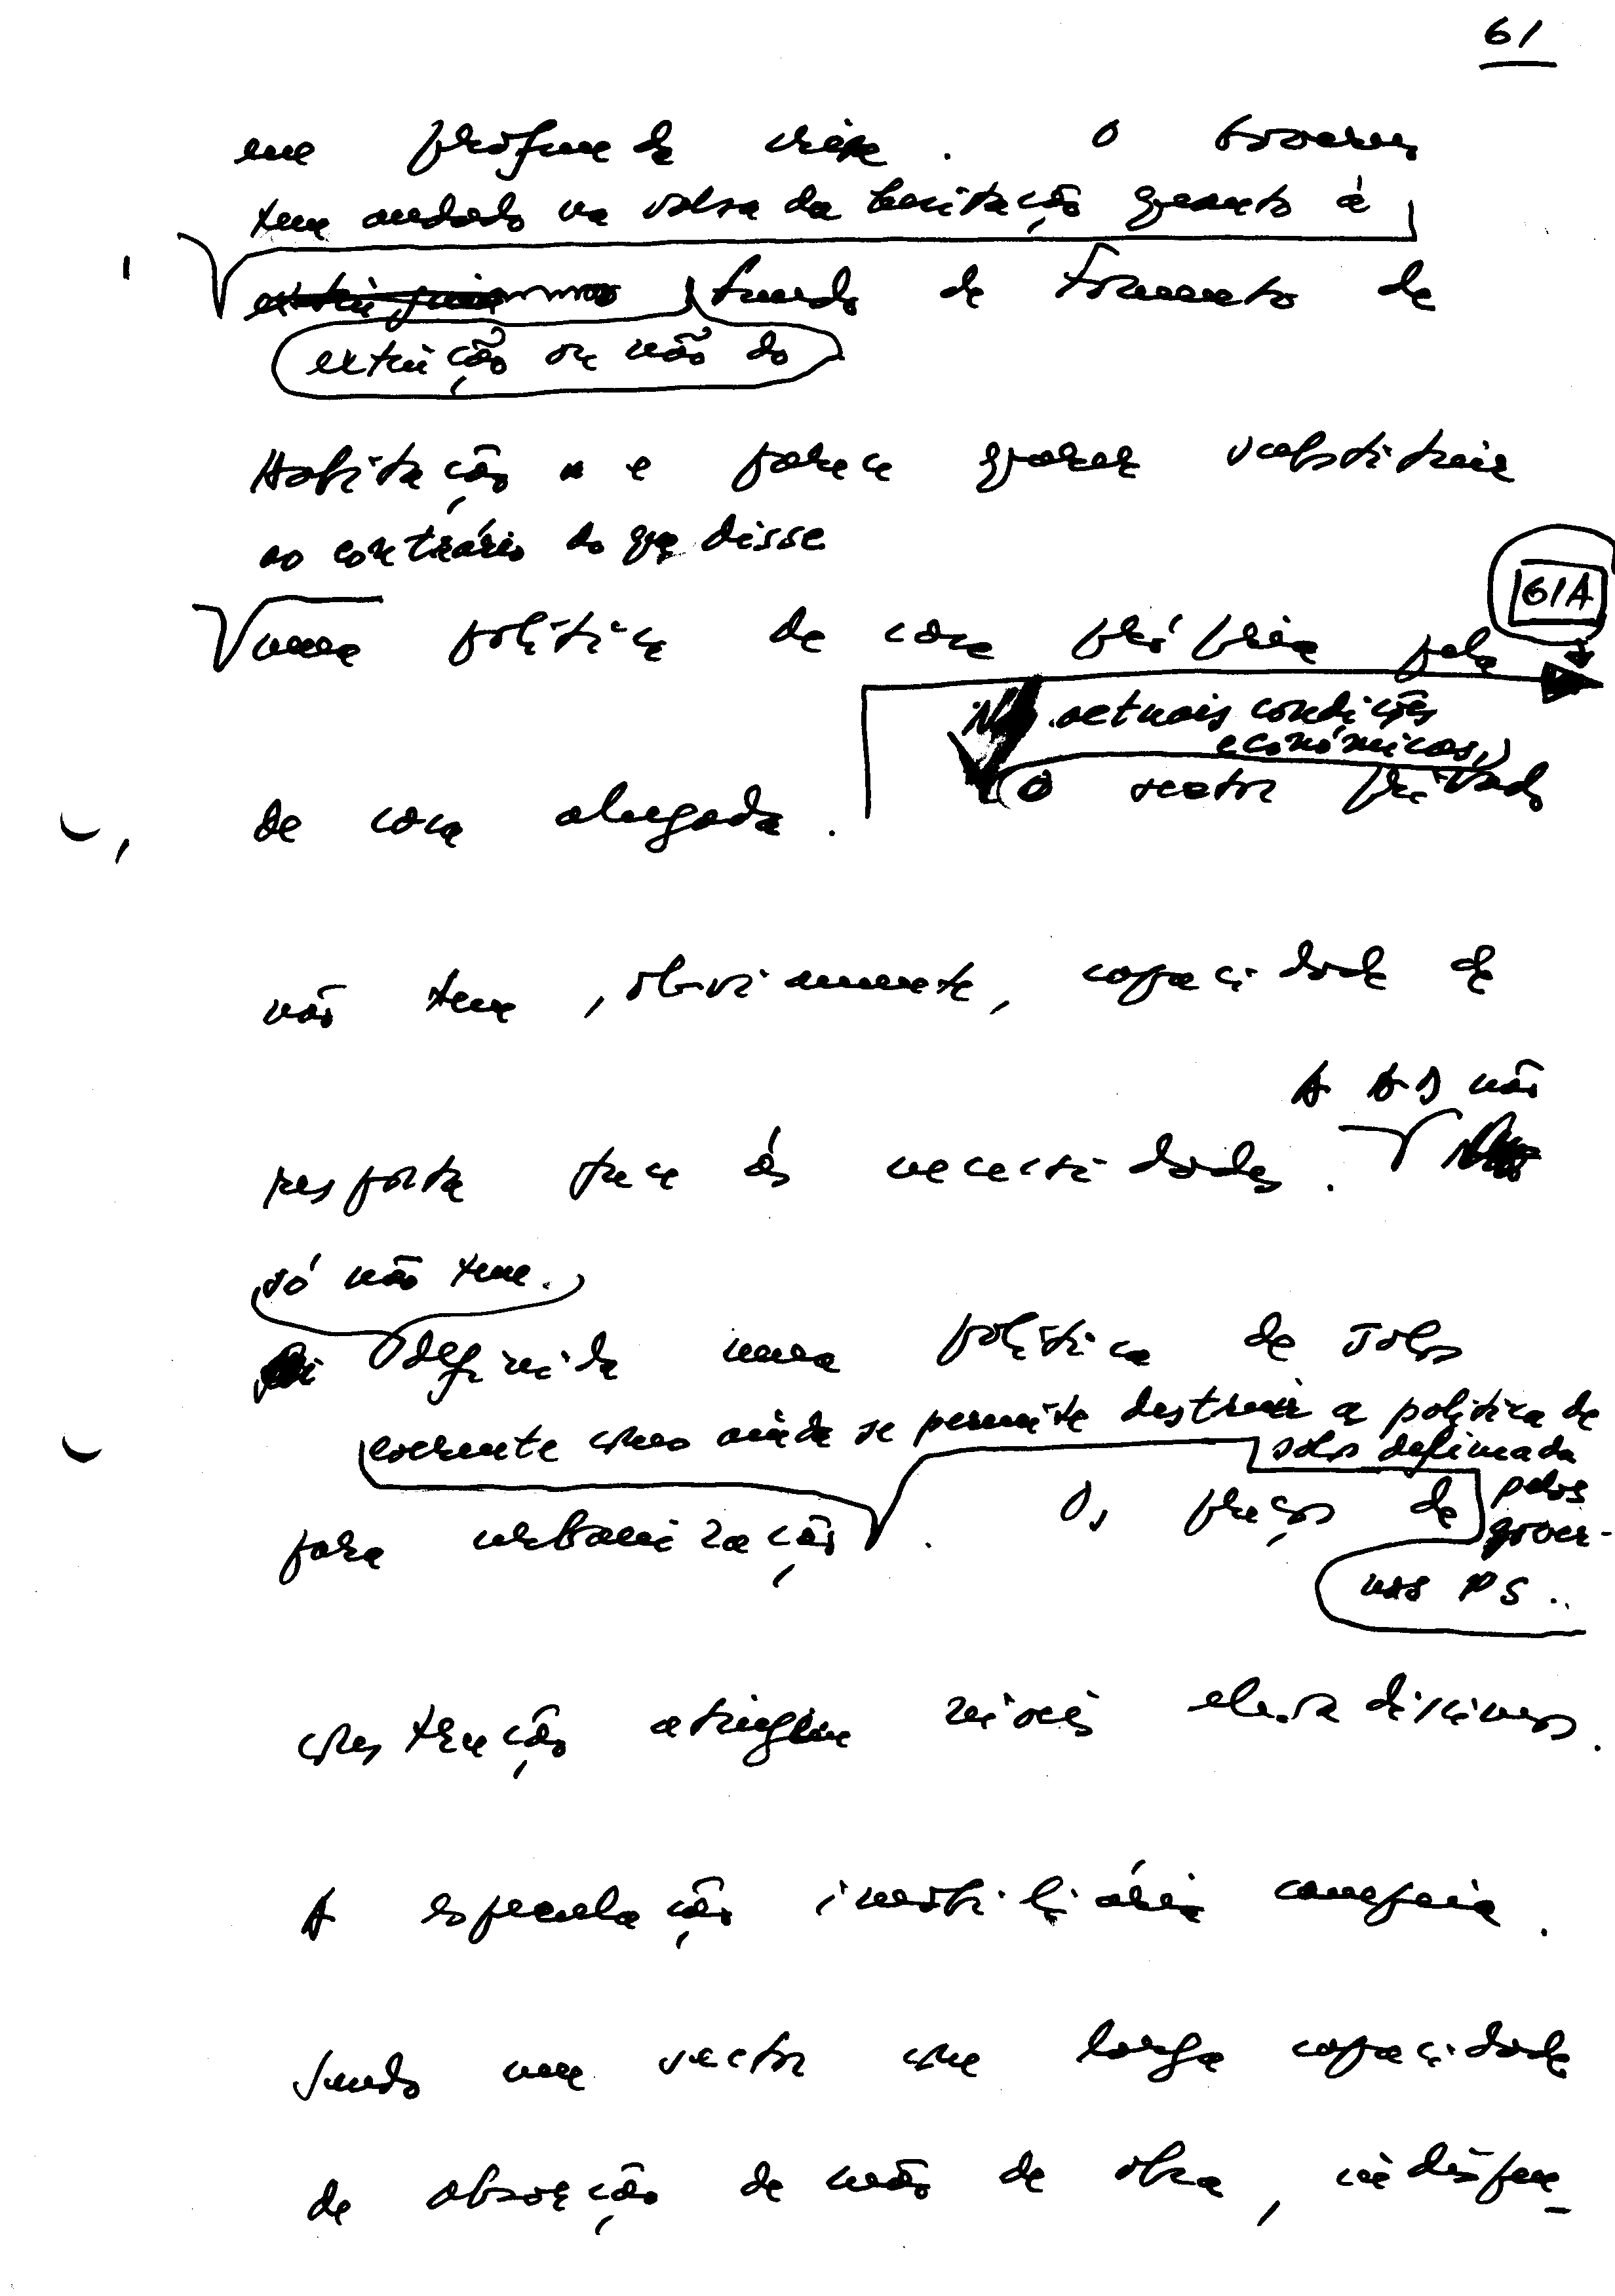 61
em profunda crise. O Governo
tem andado na valsa da hesitação quanto à
Fundo de Fomento de
extinção ou não do
Habitação e parece querer substituir
ao contrário do que disse
uma política de casa própria pela
61A
actuais condições
económicas,
O sector privado
de casa alugada.
não tem, obviamente, capacidade de
A AD não
resposta face às necessidades.
só não tem
definida uma política de solos
coerente como ainda se permite destruir a política de
solos definida
pelos
para urbanização. Os preços de
gover-
nos PS.
construção atingem níveis elevadíssimos.
A especulação imobiliária campeia.
Sendo um sector com larga capacidade
de absorção de mão de obra, indispen-